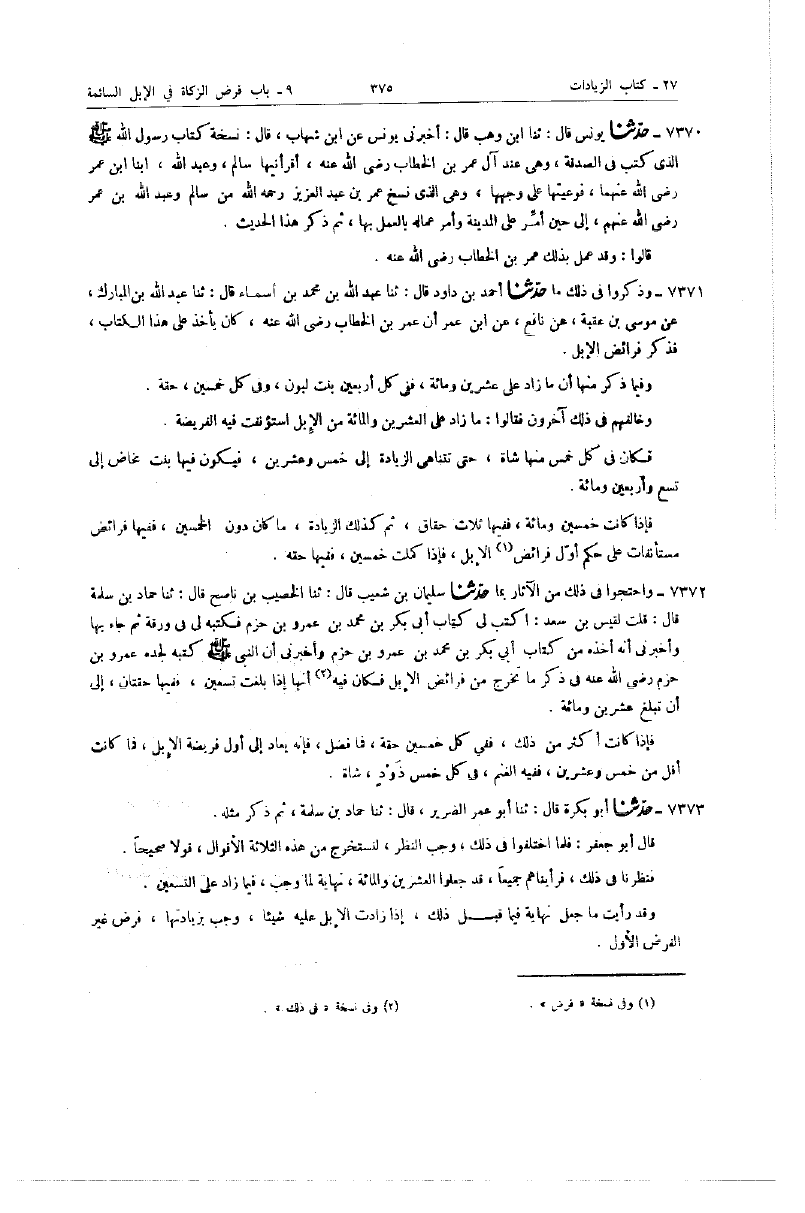 ٢٧ ـ كتاب الزيادات ٣٧٥ ٩ ـ باب فرض الزكاة في الإبل السائمة
٧٣٧٠ ـ حدثنا يونس قال : ثنا ابن وهب قال : أخبرنى يونس عن ابن شهاب ، قال : نسخة كتاب رسول الله ﷺ
الذى كتب فى الصدقة ، وهى عند آل عمر بن الخطاب رضى الله عنه ، أقرأنيها سالم ، وعبد الله ، ابنا ابن عمر
رضى الله عنهما ، فوعيتها على وجهها ، وهى الذى نسخ عمر بن عبد العزيز رحمه الله من سالم وعبد الله بن عمر
رضى الله عنهم ، إلى حين أمِّر على المدينة وأمر عماله بالعمل بها ، ثم ذكر هذا الحديث .
قالوا : وقد عمل بذلك عمر بن الخطاب رضى الله عنه .
٧٣٧١ ـ وذكروا فى ذلك ما حدثنا أحمد بن داود قال : ثنا عبد الله بن محمد بن أسماء قال : ثنا عبد الله بن المبارك ،
عن موسى بن عقبة ، عن نافع ، عن ابن عمر أن عمر بن الخطاب رضى الله عنه ، كان يأخذ على هذا الكتاب ،
فذكر فرائض الإبل .
وفيما ذكر منها أن ما زاد على عشرين ومائة ، ففى كل أربعين بنت لبون ، وفى كل خمسين ، حقة .
وخالفهم فى ذلك آخرون فقالوا : ما زاد على العشرين والمائة من الإبل استؤنفت فيه الفريضة .
فكان فى كل خمس منها شاة ، حتى تتناهى الزيادة إلى خمس وعشرين ، فيكون فيها بنت مخاض إلى
تسع وأربعين ومائة .
فإذا كانت خمسين ومائة ، ففيها ثلاث حقاق ، ثم كذلك الزيادة ، ما كان دون الخمسين ، ففيها فرائض
مستأنفات على حكم أوّل فرائض(١) الإبل ، فإذا كملت خمسين ، ففيها حقه .
٧٣٧٢ ـ واحتجوا فى ذلك من الآثار بما حدثنا سليمان بن شعيب قال : ثنا الخصيب بن ناصح قال : ثنا حماد بن سلمة
قال : قلت لقيس بن سعد : اكتب لى كتاب أبى بكر بن محمد بن عمرو بن حزم فكتبه لى فى ورقة ثم جاء بها
وأخبرنى أنه أخذه من كتاب أبي بكر بن محمد بن عمرو بن حزم وأخبرنى أن النبى ﷺ كتبه لجده عمرو بن
حزم رضي الله عنه فى ذكر ما تخرج من فرائض الإبل فكان فيه(٢) أنها إذا بلغت تسعين ، ففيها حقتان ، إلى
أن تبلغ عشرين ومائة .
فإذا كانت أكثر من ذلك ، ففي كل خمسين حقة ، فما فضل ، فإنه يعاد إلى أول فريضة الإبل ، فما كانت
أقل من خمس وعشرين ، ففيه الغنم ، فى كل خمس ذَوْدٍ ، شاة .
٧٣٧٣ ـ حدثنا أبو بكرة قال : ثنا أبو عمر الضرير ، قال : ثنا حماد بن سلمة ، ثم ذكر مثله .
قال أبو جعفر : فلما اختلفوا فى ذلك ، وجب النظر ، لنستخرج من هذه الثلاثة الأقوال ، قولا صحيحاً .
فنظرنا فى ذلك ، فرأيناهم جميعاً ، قد جعلوا العشرين والمائة ، نهاية لما وجب ، فيما زاد على التسعين .
وقد رأيت ما جعل نهاية فيما قبـــل ذلك ، إذا زادت الإبل عليه شيئا ، وجب بزيادتها ، فرض غير
الفرض الأول .
(١) وفى نسخة « فرض » . (٢) وفى نسخة « فى ذلك » .